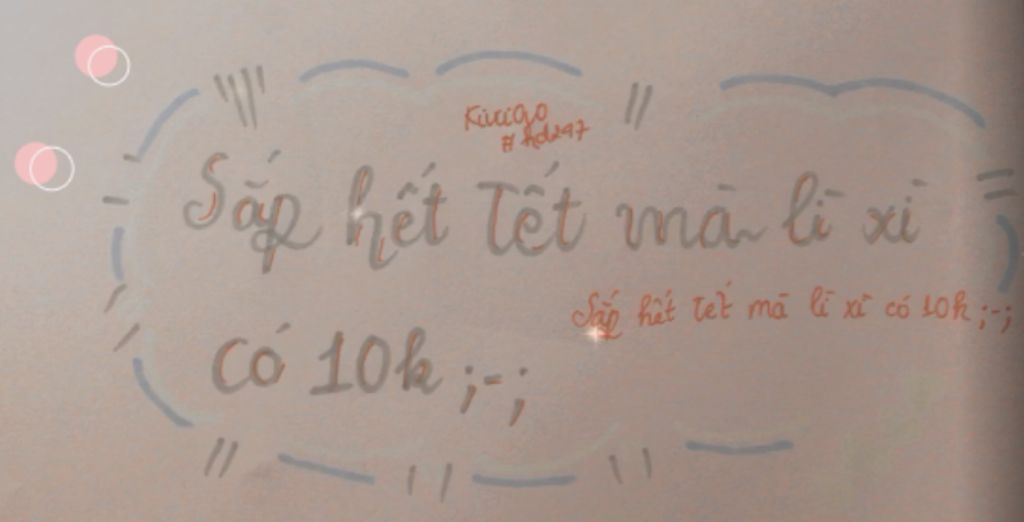 Kiucigo
# hd297
Sắp hết Tết mà lì xì
Sắp hết Tết mà lì xì có 10k ;-;
có 10k ;-;